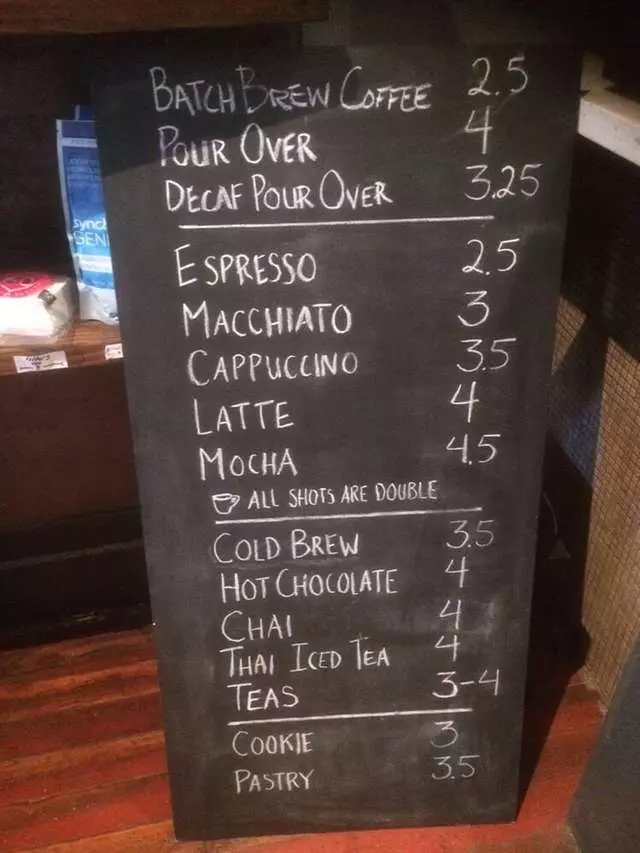 BATCH BREW COFFEE 2.5
POUR OVER 4
DECAF POUR OVER 3.25
ESPRESSO 2.5
MACCHIATO 3
CAPPUCCINO 3.5
LATTE 4
MOCHA 4.5
ALL SHOTS ARE DOUBLE
COLD BREW 3.5
HOT CHOCOLATE 4
CHAI 4
THAI ICED TEA 4
TEAS 3-4
COOKIE 3
PASTRY 3.5